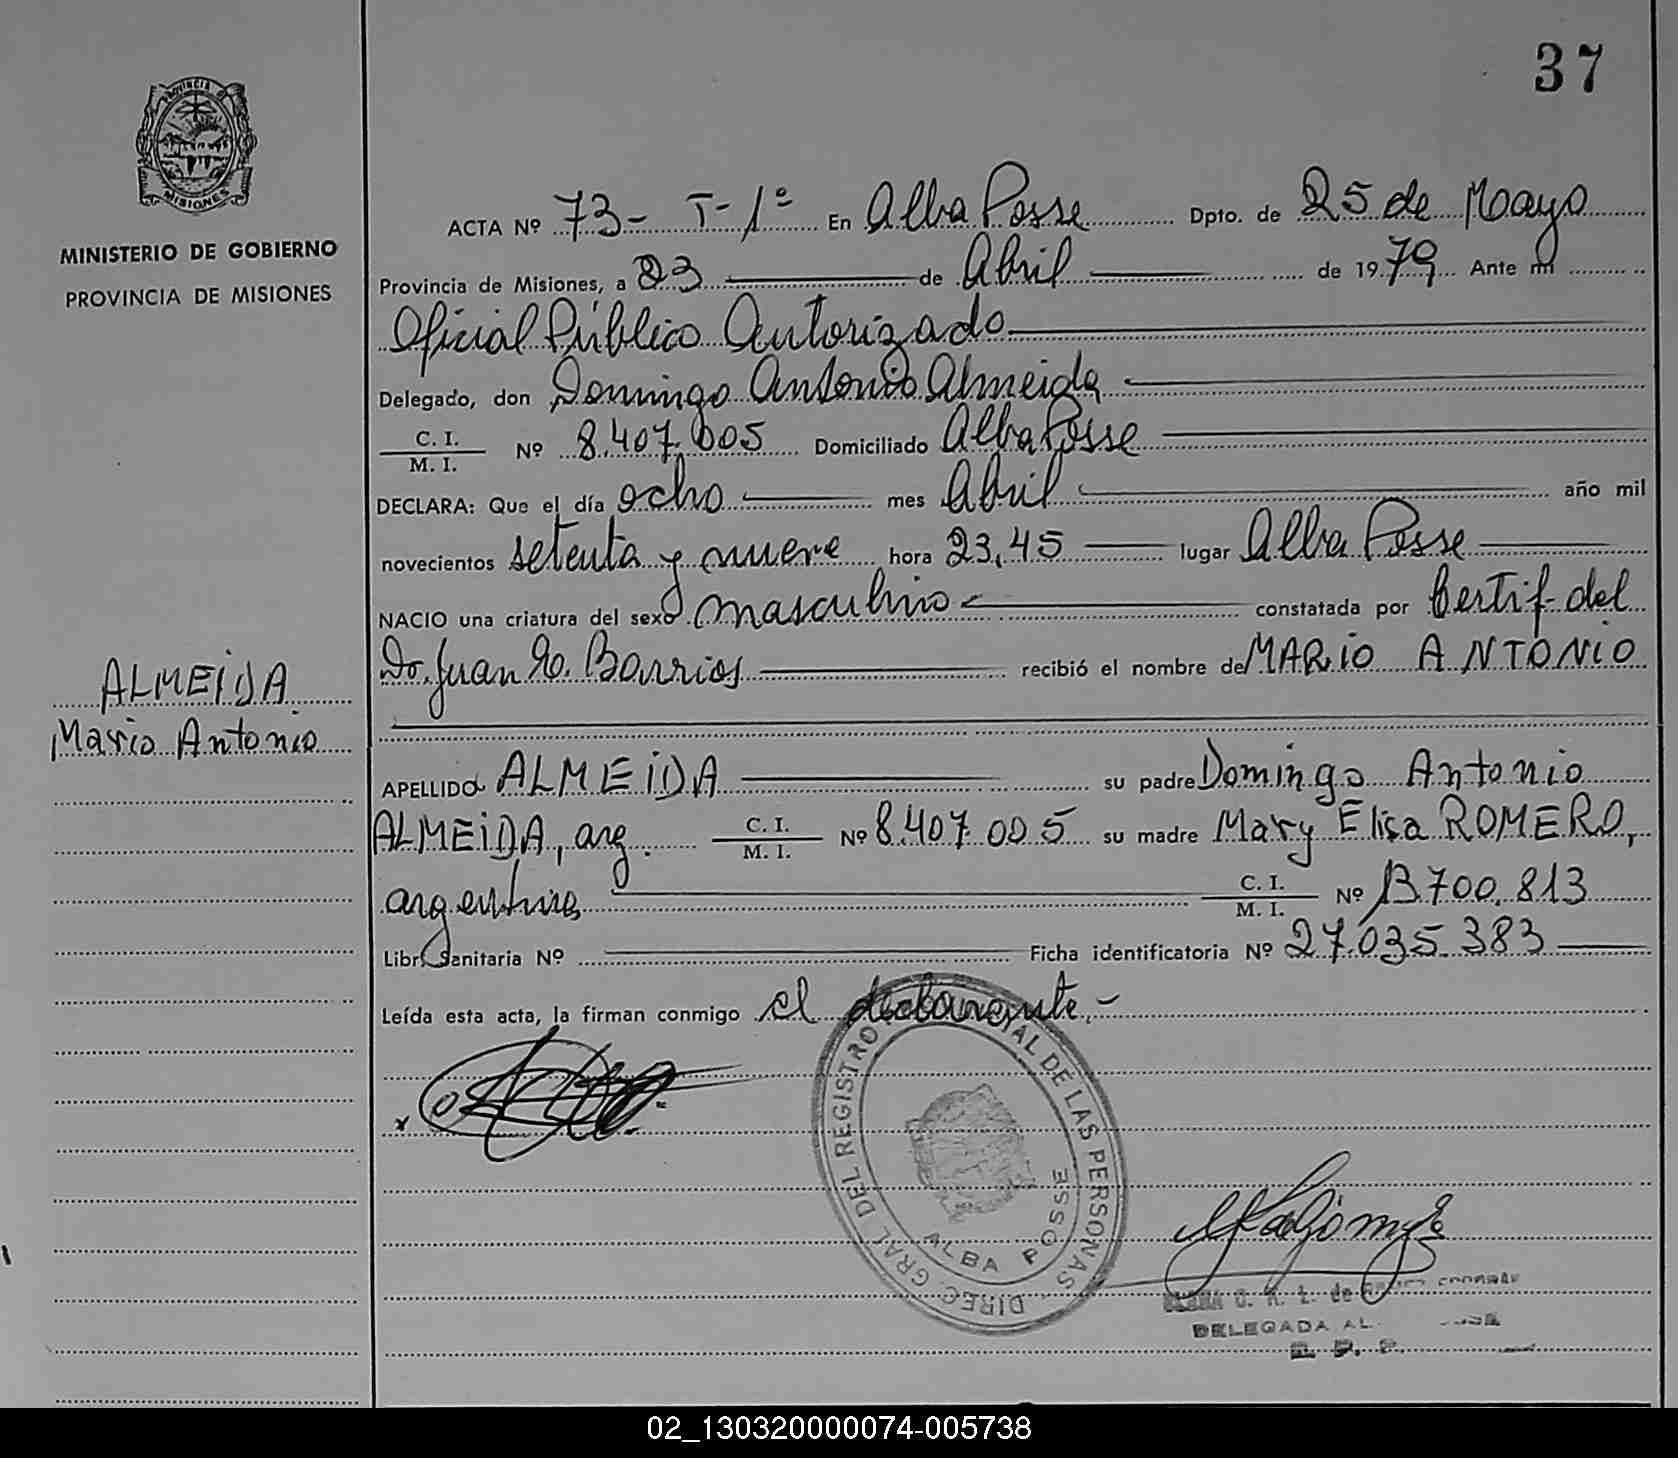 37
PROVINCIA D
MISIONES
MINISTERIO DE GOBIERNO
PROVINCIA DE MISIONES
ALMEIDA
Mario Antonio
ACTA Nº 73- T-1º En Alba Posse Dpto. de 25 de Mayo
Provincia de Misiones, a 23 de Abril de 1979 Ante mi
Oficial Público Autorizado
Delegado, don Domingo Antonio Almeida
C. I.
M. I. Nº 8.407.005 Domiciliado Alba Posse
DECLARA: Que el día ocho mes Abril año mil
novecientos setenta y nueve hora 23,45 lugar Alba Posse
NACIO una criatura del sexo masculino constatada por Certif. del
Dr. Juan Barrios recibió el nombre de MARIO ANTONIO
APELLIDO ALMEIDA su padre Domingo Antonio
ALMEIDA, arg. C. I.
M. I. Nº 8.407.005 su madre Mary Elisa ROMERO,
argentina C. I.
M. I. Nº 13.700.813
Libr. Sanitaria Nº Ficha identificatoria Nº 27.035.383
Leída esta acta, la firman conmigo el declarante.-
DIREC. GRAL DEL REGISTRO AL DE LAS PERSONAS
ALBA POSSE
DELEGADA AL
02_130320000074-005738